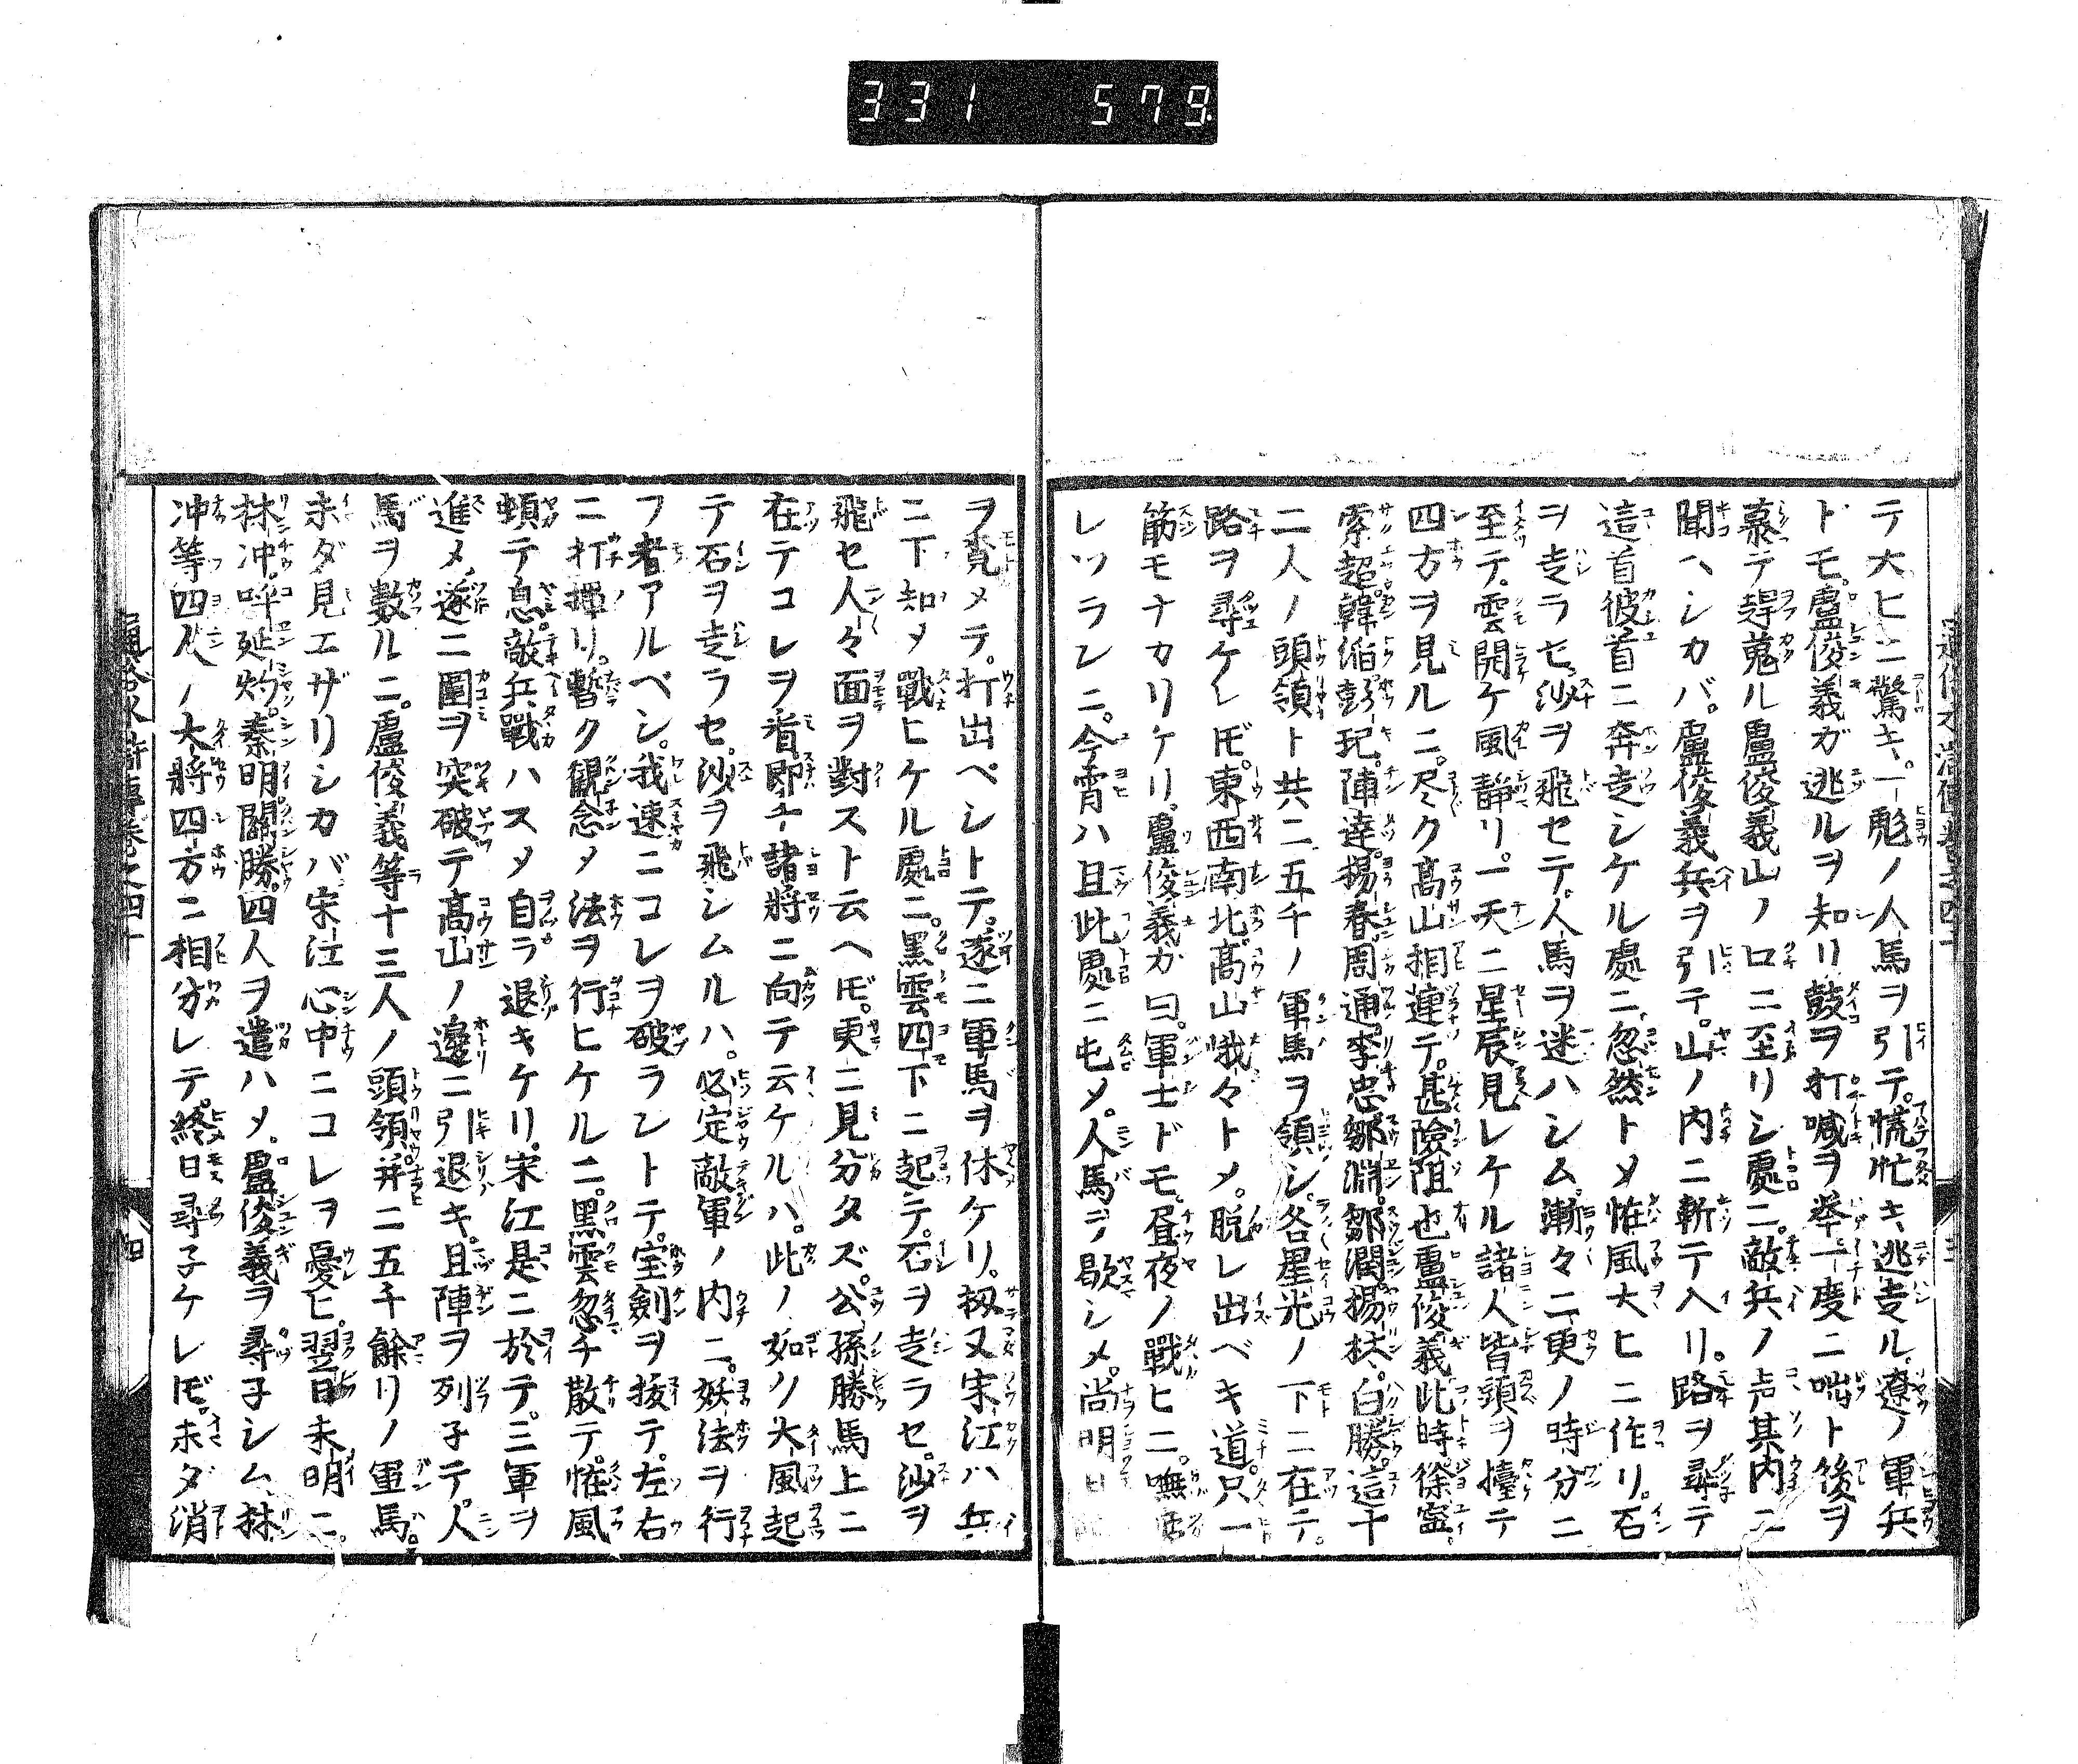 331 579
テ大ヒニ驚キ。一彪ノ人馬ヲ引テ。慌忙キ逃走ル。遼ノ軍兵
トモ。盧俊義ガ逃ルヲ知リ鼓ヲ打喊ヲ挙一度ニ咄ト後ヲ
慕テ趕蒐ル盧俊義山ノ口ニ至リシ處ニ。敵兵ノ声其内ニ
聞ヘシカバ。盧俊義兵ヲ引テ。山ノ内ニ斬テ入リ。路ヲ尋テ
這首彼首ニ奔走シケル處ニ。忽然トメ惟風大ヒニ作リ。石
ヲ走ラセ。沙ヲ飛セテ。人馬ヲ迷ハシム。漸々二更ノ時分ニ
至テ。雲開ケ風静リ。一天ニ星辰見レケル諸人皆頭ヲ擡テ
四方ヲ見ルニ。尽ク高山相連テ。甚險阻也盧俊義此時徐寧。
索超。韓滔。彭玘。陳達。楊春。周通。李忠。鄒淵。鄒潤。楊林。白勝。這十
二人ノ頭領ト共ニ。五千ノ軍馬ヲ領シ。各星光ノ下ニ在テ。
路ヲ尋ケレ𪜈。東西南北高山峨々トメ。脱レ出ベキ道。只一
筋モナカリケリ。盧俊義カ曰。軍士ドモ。昼夜ノ戰ヒニ。嘸
レツランニ。今霄ハ且此處ニ屯メ。人馬ヲ歇シメ。尚明日
ヲ覓メテ。打出ベシトテ。遂ニ軍馬ヲ休ケリ。扨又宋江ハ兵
ニ下知メ戰ヒケル處ニ。黒雲四下ニ起テ。石ヲ走ラセ。沙ヲ
飛セ人々面ヲ對スト云ヘ𪜈。更ニ見分タズ。公孫勝馬上ニ
在テコレヲ看。即チ諸將ニ向テ云ケルハ。此ノ如ク大風起
テ石ヲ走ラセ。沙ヲ飛シムルハ。必定敵軍ノ内ニ。妖法ヲ行
フ者アルベシ。我速ニコレヲ破ラントテ。宝劍ヲ抜テ。左右
ニ打揮リ。暫ク観念メ法ヲ行ヒケルニ。黒雲忽チ散テ。惟風
頓テ息。敵兵戰ハスメ自ラ退キケリ。宋江是ニ於テ。三軍ヲ
進メ。遂ニ圍ヲ突破テ高山ノ邊ニ引退キ。且陣ヲ列子テ。人
馬ヲ数ルニ。盧俊義等十三人ノ頭領。并ニ五千餘リノ軍馬。
未ダ見エザリシカバ宋江心中ニコレヲ憂ヒ。翌日未明ニ。
林冲。呼延灼。秦明。關勝。四人ヲ遣ハメ。盧俊義ヲ尋子シム。林
冲等四人ノ大將四方ニ相分レテ。終日尋子ケレ𪜈。未ダ消
四